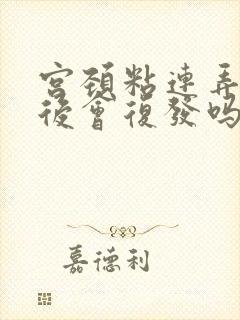 宫颈粘連弄
後會復發吗
嘉德利